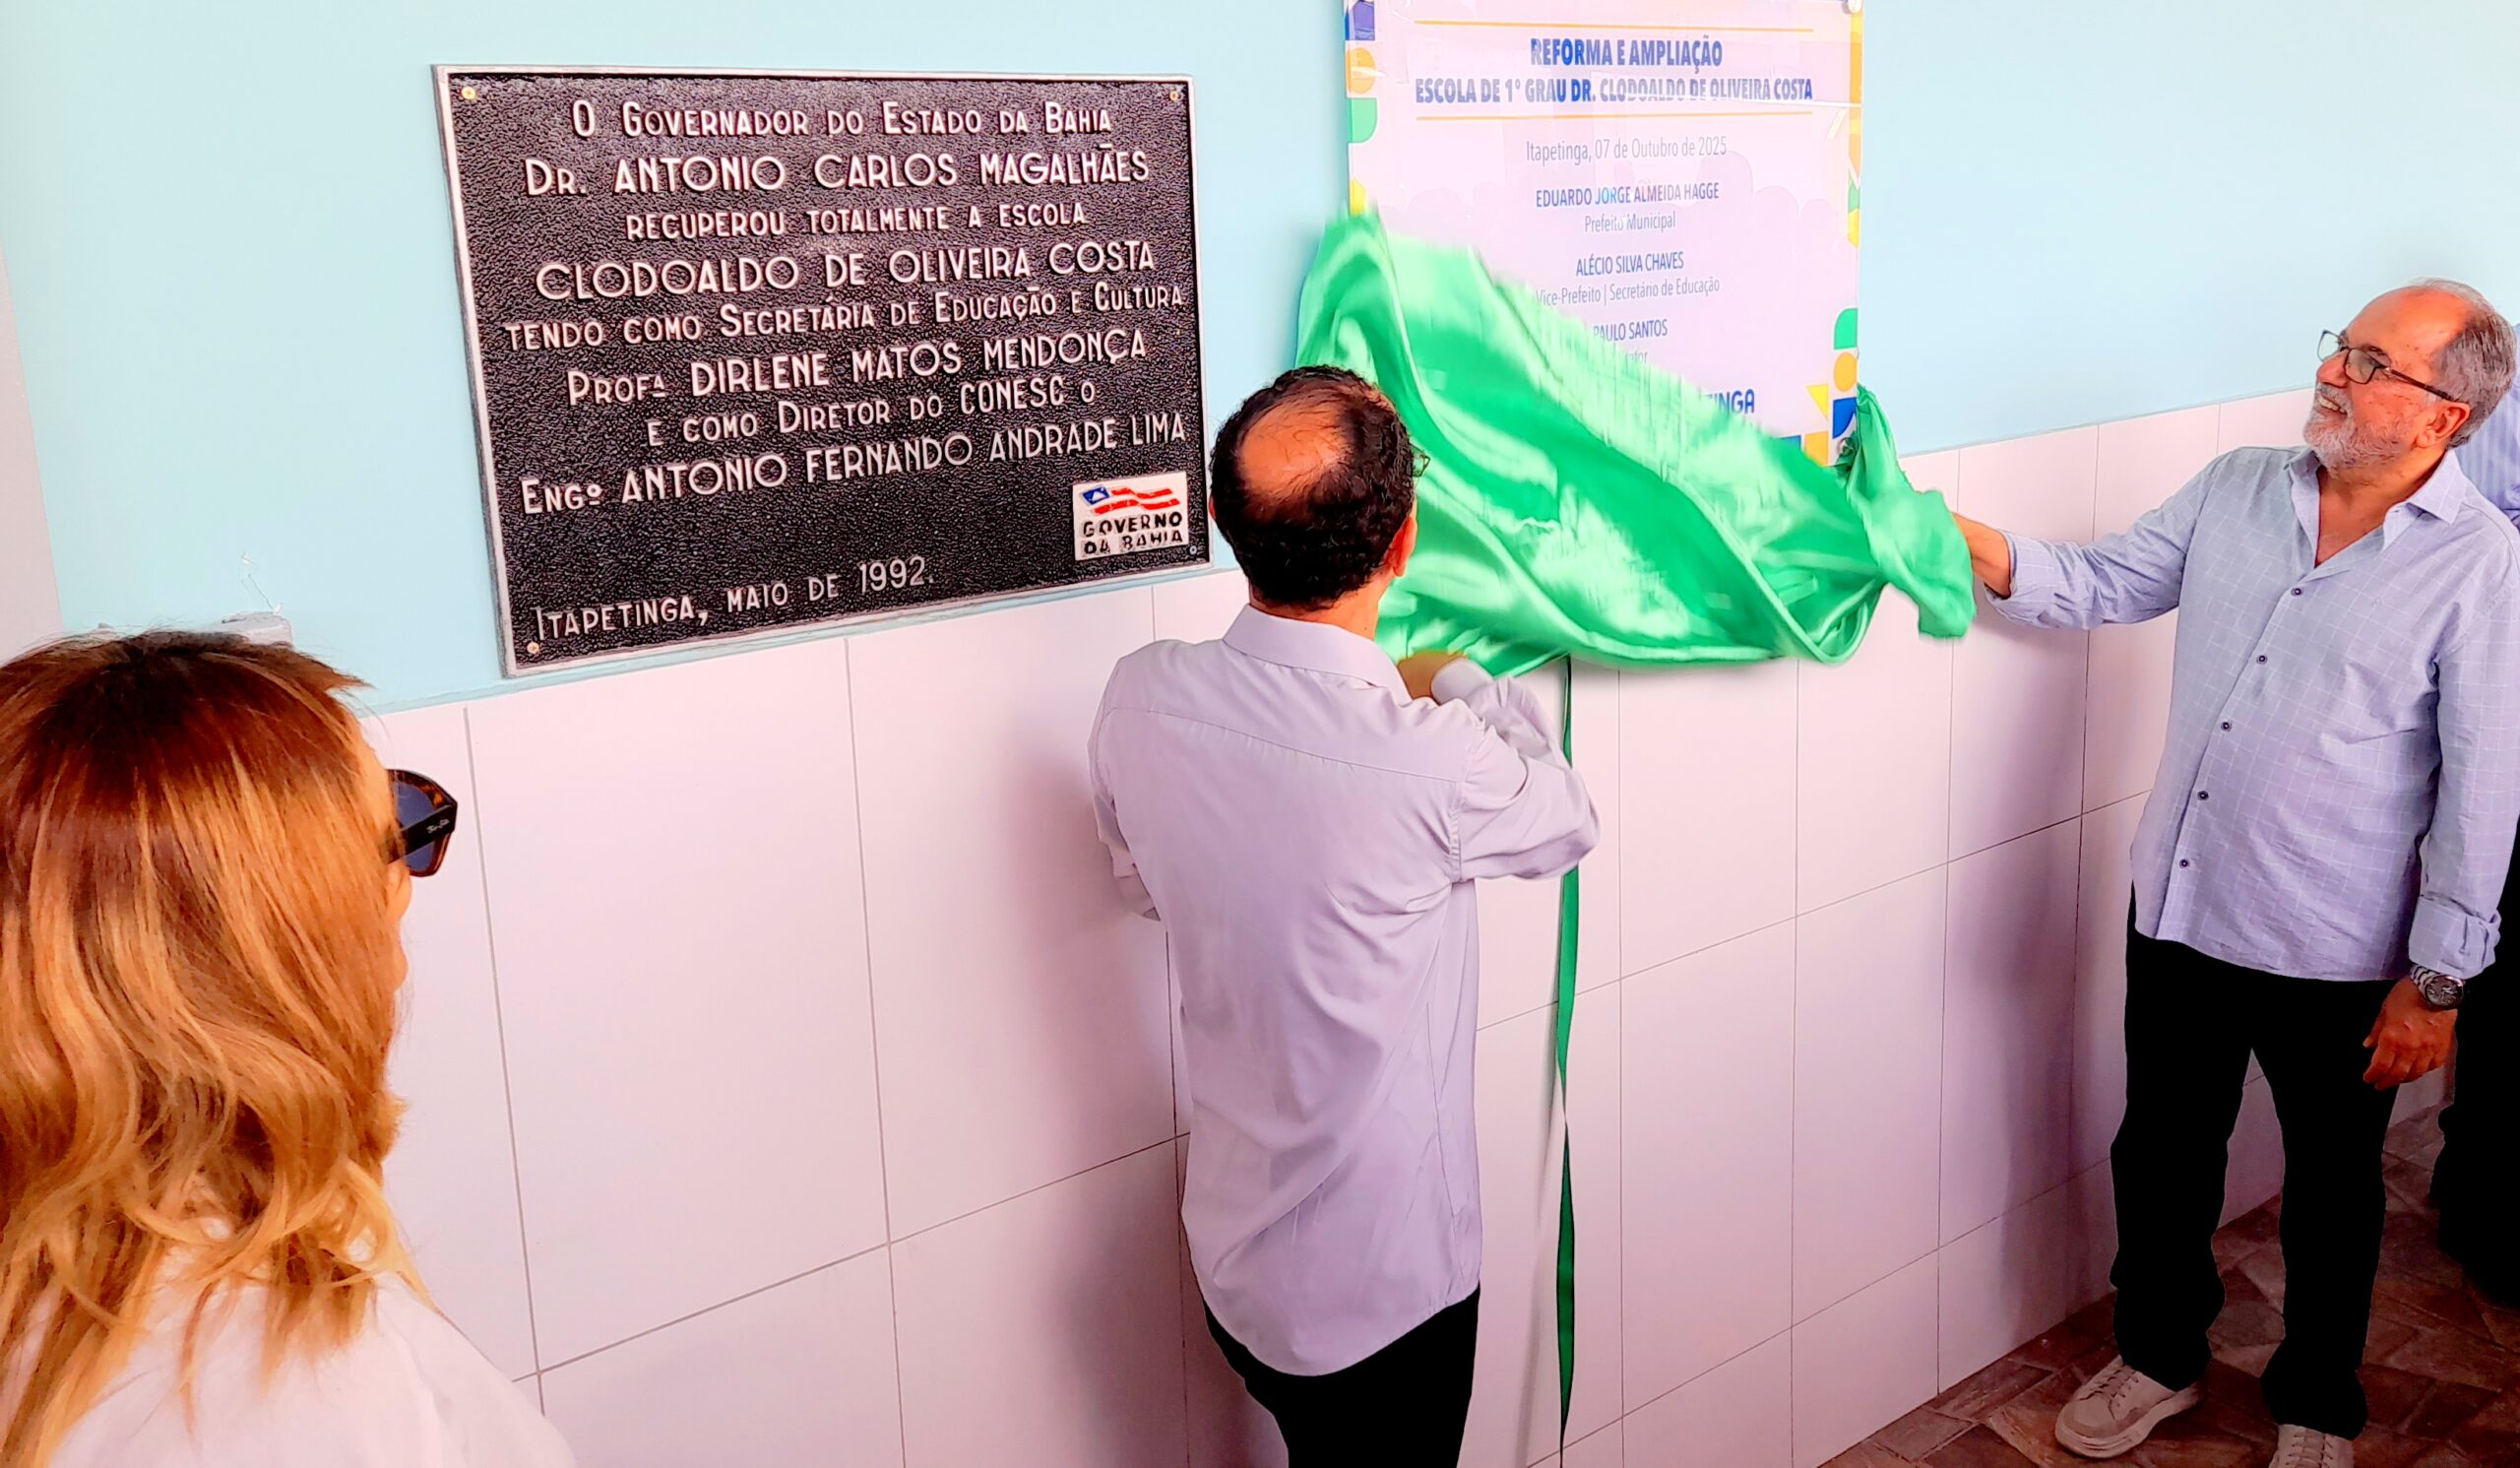 O GOVERNADOR DO ESTADO DA BAHIA
DR. ANTONIO CARLOS MAGALHÃES
RECUPEROU TOTALMENTE A ESCOLA
CLODOALDO DE OLIVEIRA COSTA
TENDO COMO SECRETÁRIA DE EDUCAÇÃO E CULTURA
PROFª DIRLENE MATOS MENDONÇA
E COMO DIRETOR DO CONESC O
ENGº ANTONIO FERNANDO ANDRADE LIMA
GOVERNO
DA BAHIA
ITAPETINGA, MAIO DE 1992.
REFORMA E AMPLIAÇÃO
ESCOLA DE 1° GRAU DR. CLODOALDO DE OLIVEIRA COSTA
Itapetinga, 07 de Outubro de 2025
EDUARDO JORGE ALMEIDA HAGGE
Prefeito Municipal
ALÉCIO SILVA CHAVES
Vice-Prefeito | Secretário de Educação
PAULO SANTOS